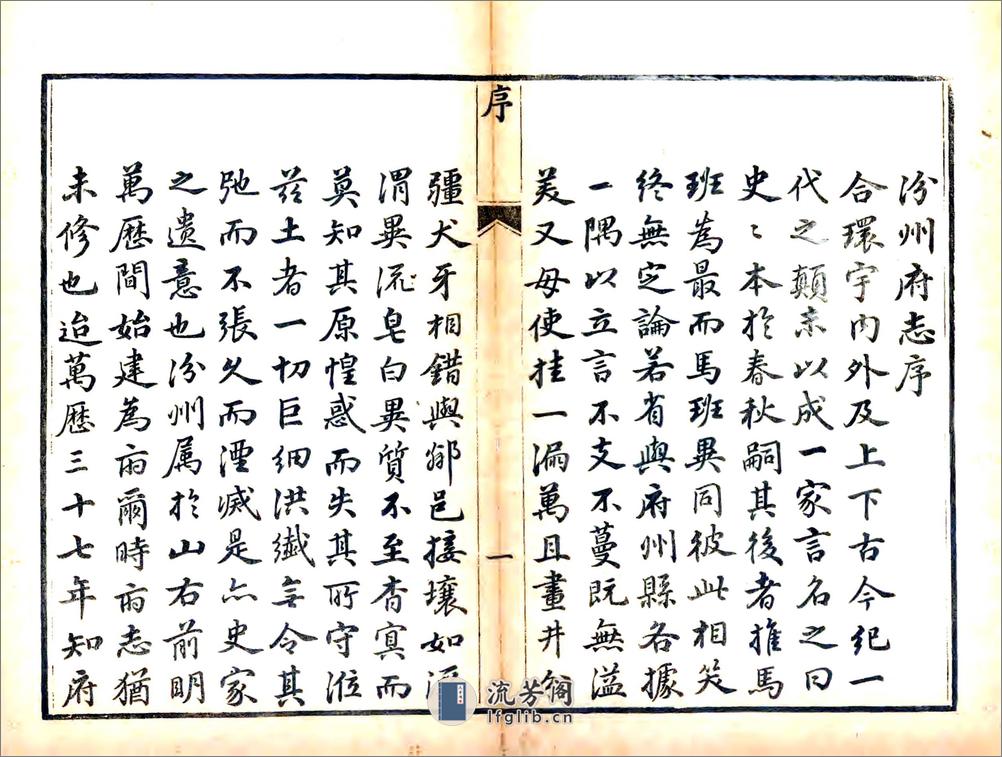 汾州府志序
合環宇内外及上下古今紀一
代之顛末以成一家言名之曰
史〻本於春秋嗣其後者推馬
班為最而馬班異同彼此相笑
終無定論若省與府州縣各據
一隅以立言不支不蔓既無溢
美又毋使挂一漏萬且畫井分
疆犬牙相錯與鄰邑接壤如涇
渭異流皂白異質不至杳冥而
莫知其原惶惑而失其所守涖
茲土者一切巨細洪纖無令其
弛而不張久而湮滅是亦史家
之遺意也汾州属於山右前明
萬厯間始建為府爾時府志猶
未修也迨萬厯三十七年知府
序
一
流芳阁
lfglib.cn